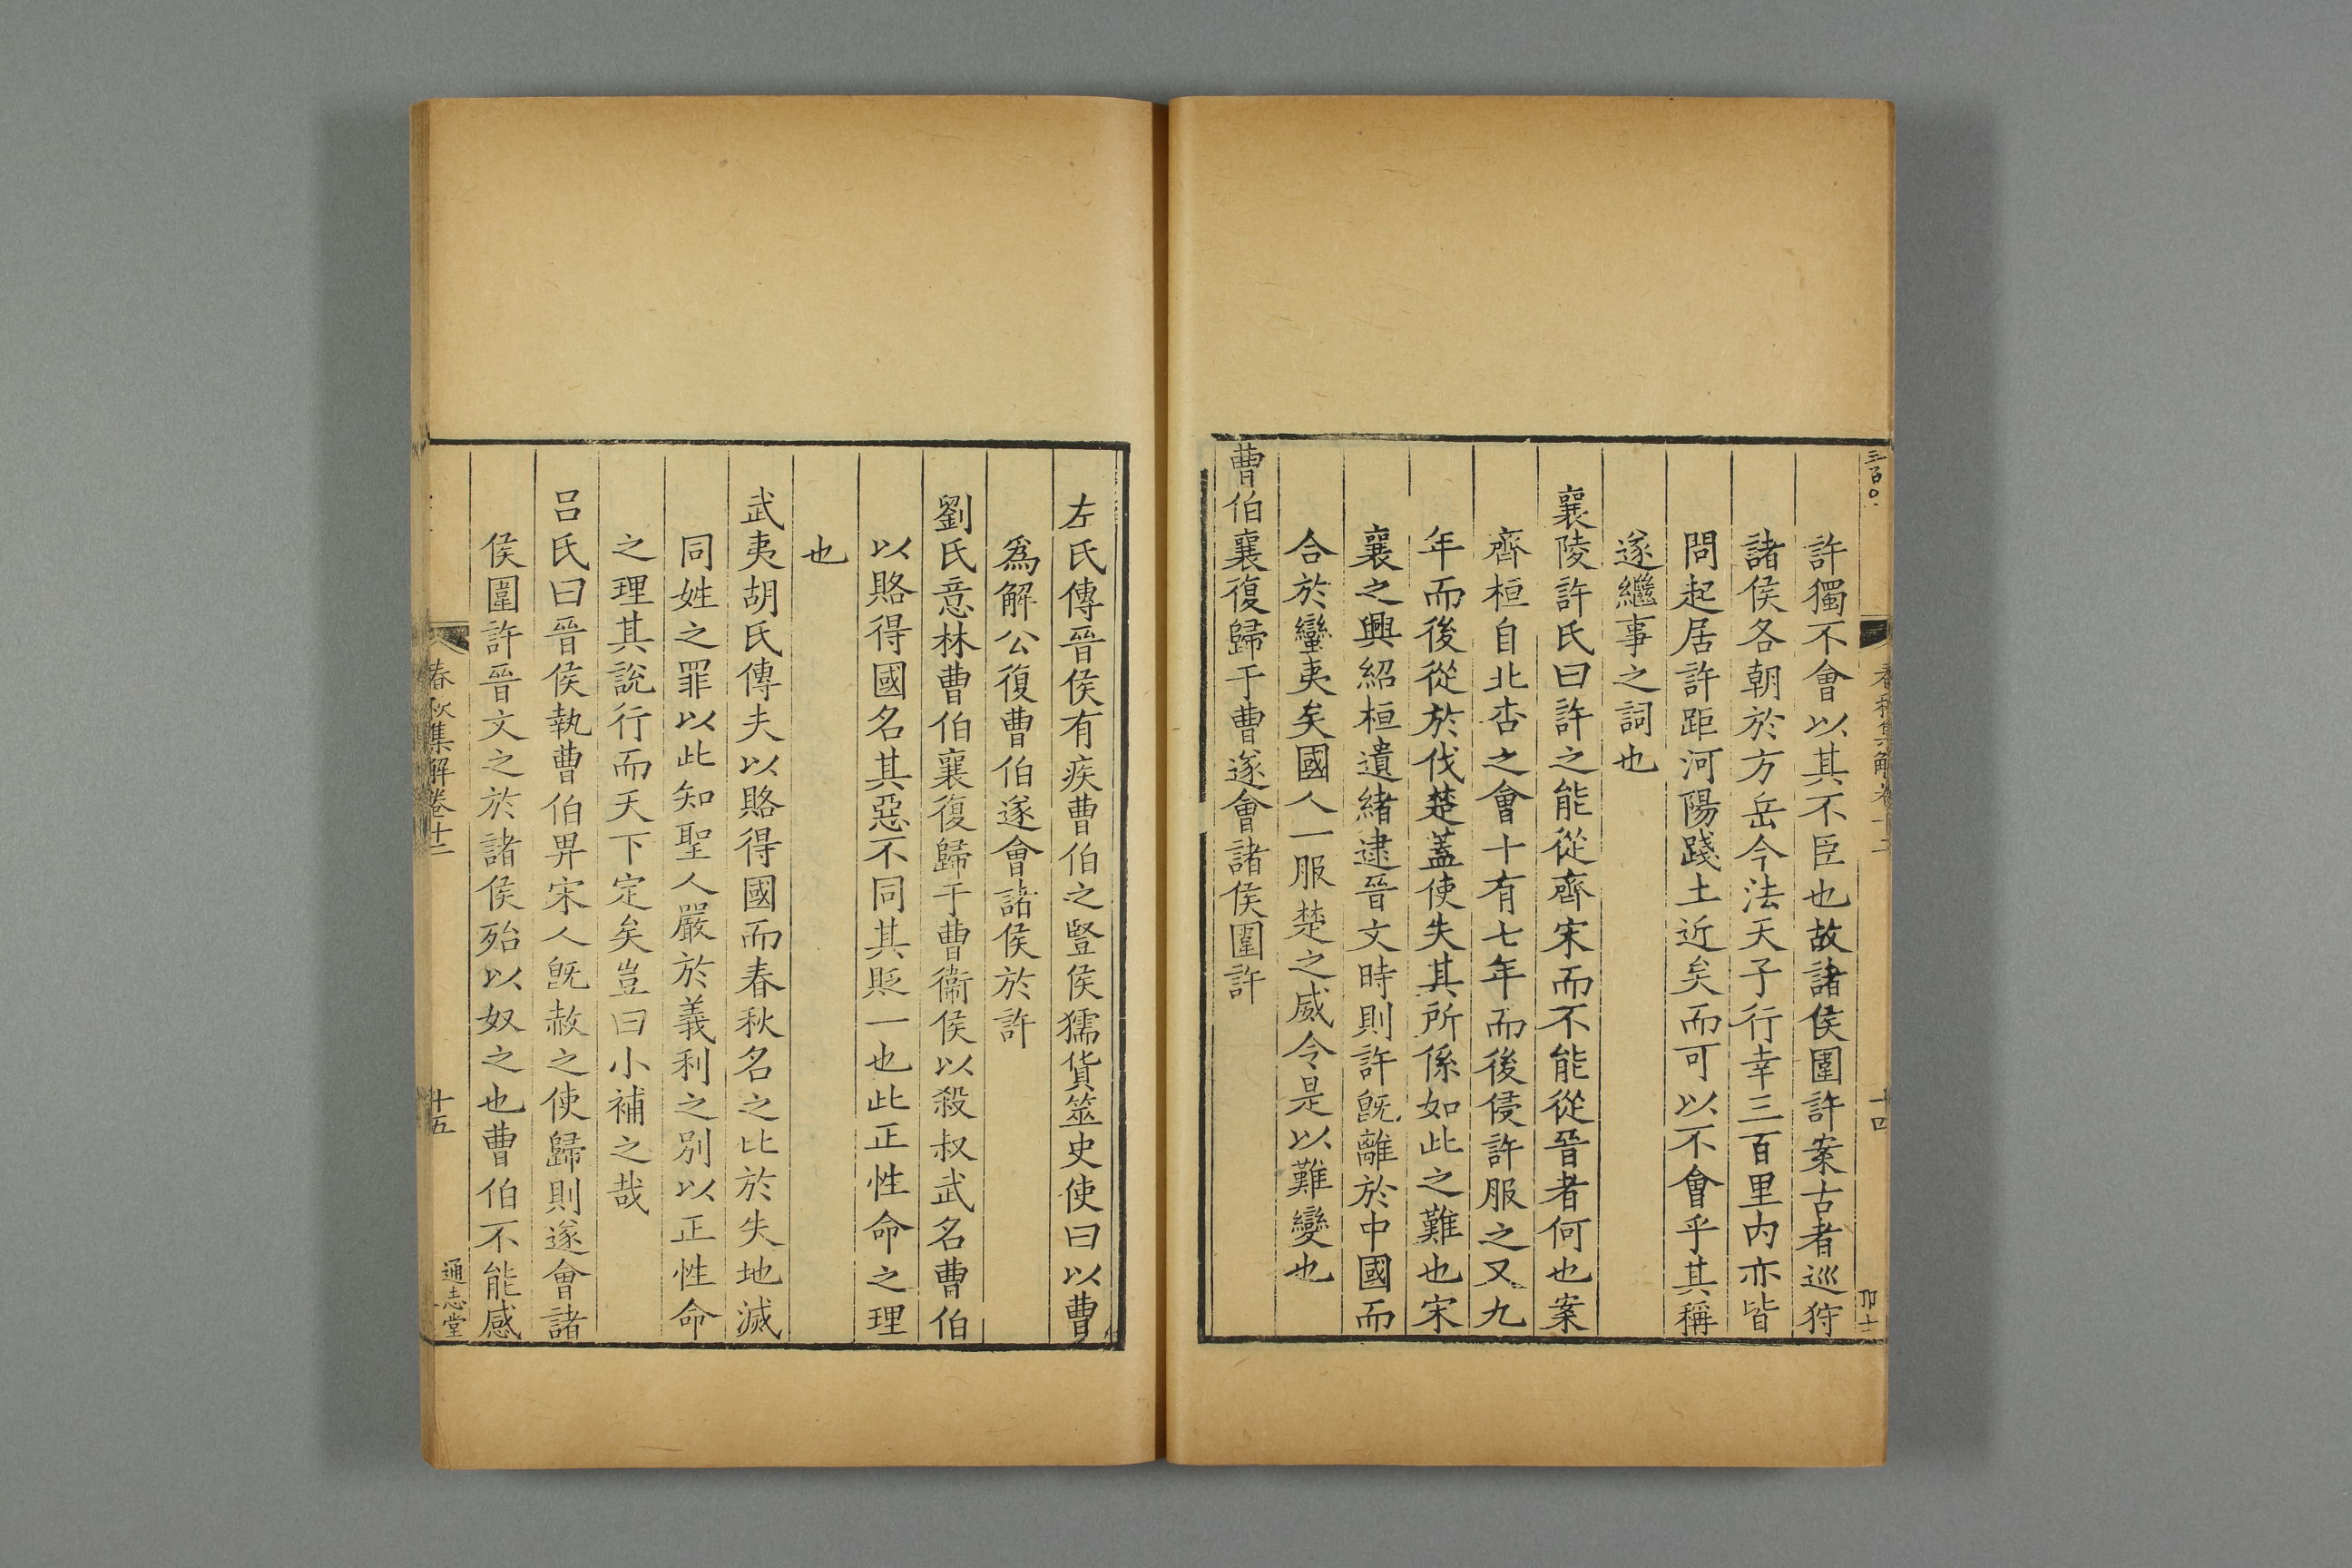 許獨不會以其不臣也故諸侯圍許案古者巡狩
諸侯各朝於方岳今法天子行幸三百里内亦皆
問起居許距河陽踐土近矣而可以不會乎其稱
遂繼事之詞也
襄陵許氏曰許之能從齊宋而不能從晉者何也案
齊桓自北杏之會十有七年而後侵許服之又九
年而後從於伐楚蓋使失其所係如此之難也宋
襄之興紹桓遺緒逮晉文時則許旣離於中國而
合於蠻夷矣國人一服楚之威令是以難變也
曹伯襄復歸于曹遂會諸侯圍許
左氏傳晉侯有疾曹伯之豎侯獳貨筮史使曰以曹
爲解公復曹伯遂會諸侯於許
劉氏意林曹伯襄復歸于曹衞侯以殺叔武名曹伯
以賂得國名其惡不同其貶一也此正性命之理
也
武夷胡氏傳夫以賂得國而春秋名之比於失地滅
同姓之罪以此知聖人嚴於義利之別以正性命
之理其說行而天下定矣豈曰小補之哉
呂氏曰晉侯執曹伯畀宋人旣赦之使歸則遂會諸
侯圍許晉文之於諸侯殆以奴之也曹伯不能感
春秋集解卷十二
十五
通志堂